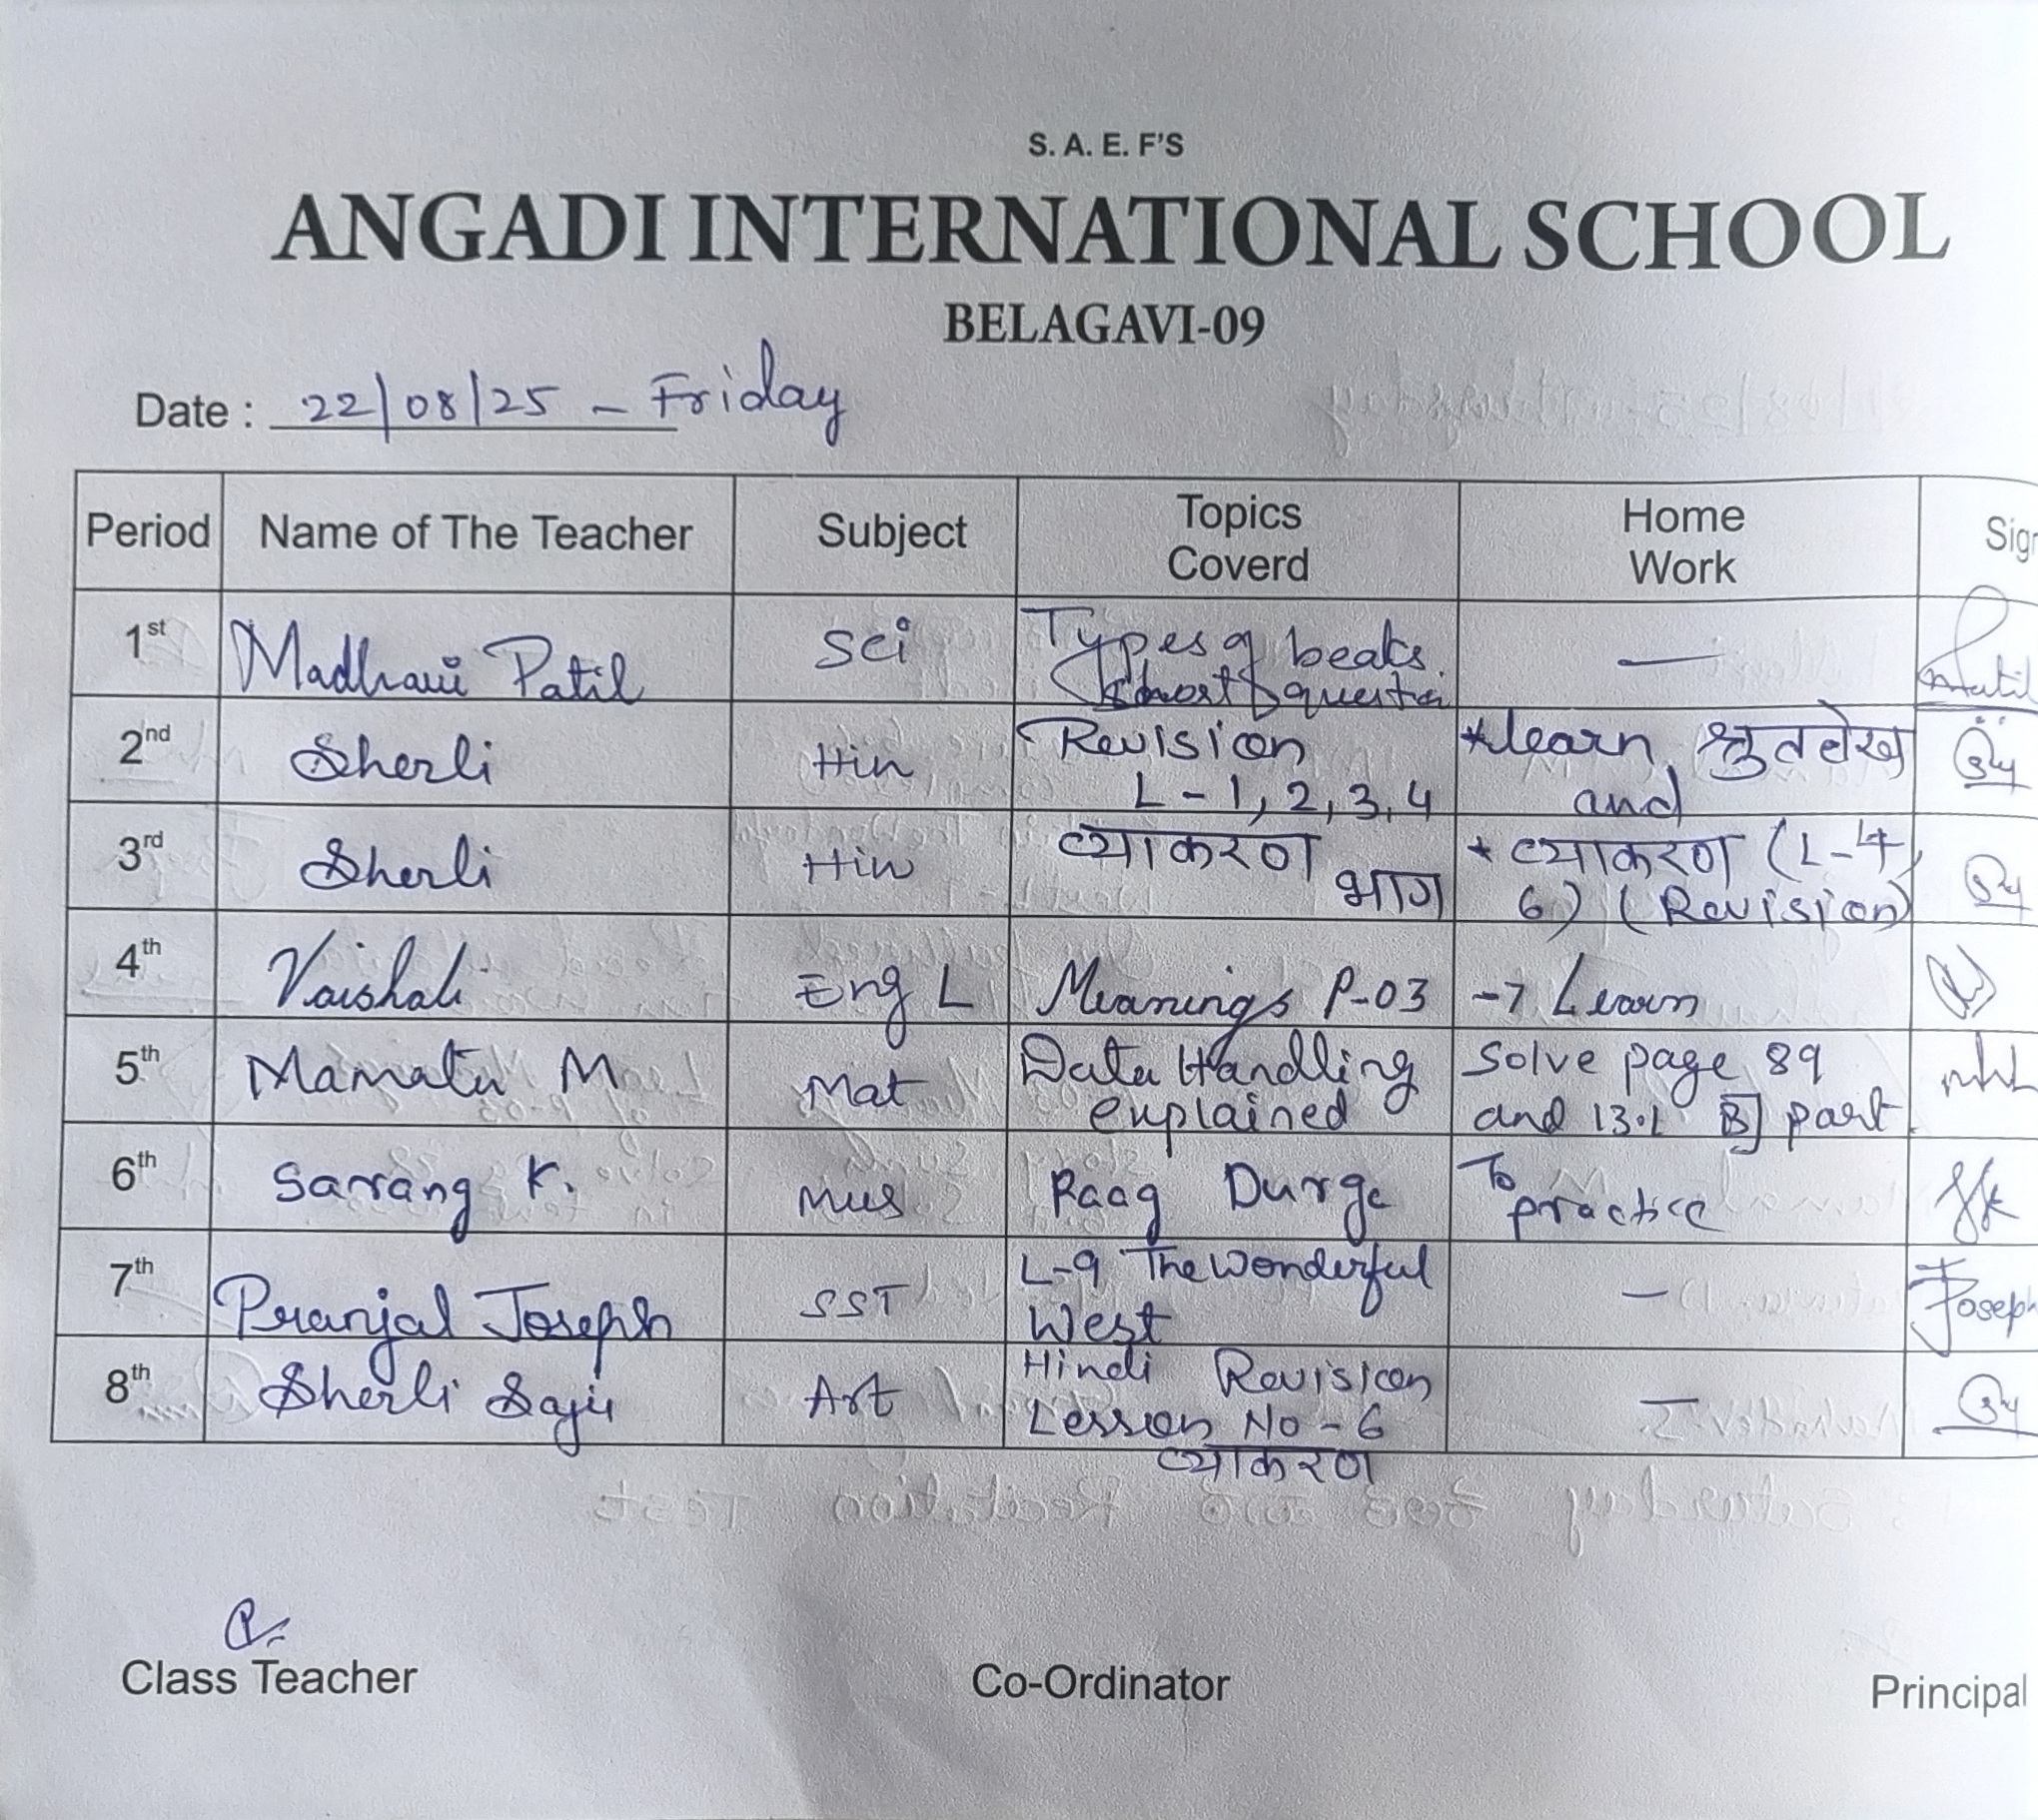 S. A. E. F'S
ANGADI INTERNATIONAL SCHOOL
BELAGAVI-09
Date : 22/08/25 - Friday
Period Name of The Teacher Subject Topics Coverd Home Work Sign
1st Madhavi Patil Sci Types of beaks. —
short questi
2nd Sherli Hin Revision *learn श्रुतलेख
L - 1, 2, 3, 4 and
3rd Sherli Hin व्याकरण * व्याकरण (L-4,
भाग 6) (Revision)
4th Vaishali Eng L Meanings P-03 -7 Learn
5th Mamata M Mat Data Handling Solve page 89
explained and 13.1 B] part.
6th Sarang K. Mus Raag Durga To
practice
7th Pranjal Joseph SST L-9 The Wonderful — Joseph
West
8th Sherli Saju Art Hindi Revision —
Lesson No - 6
व्याकरण
Class Teacher Co-Ordinator Principal